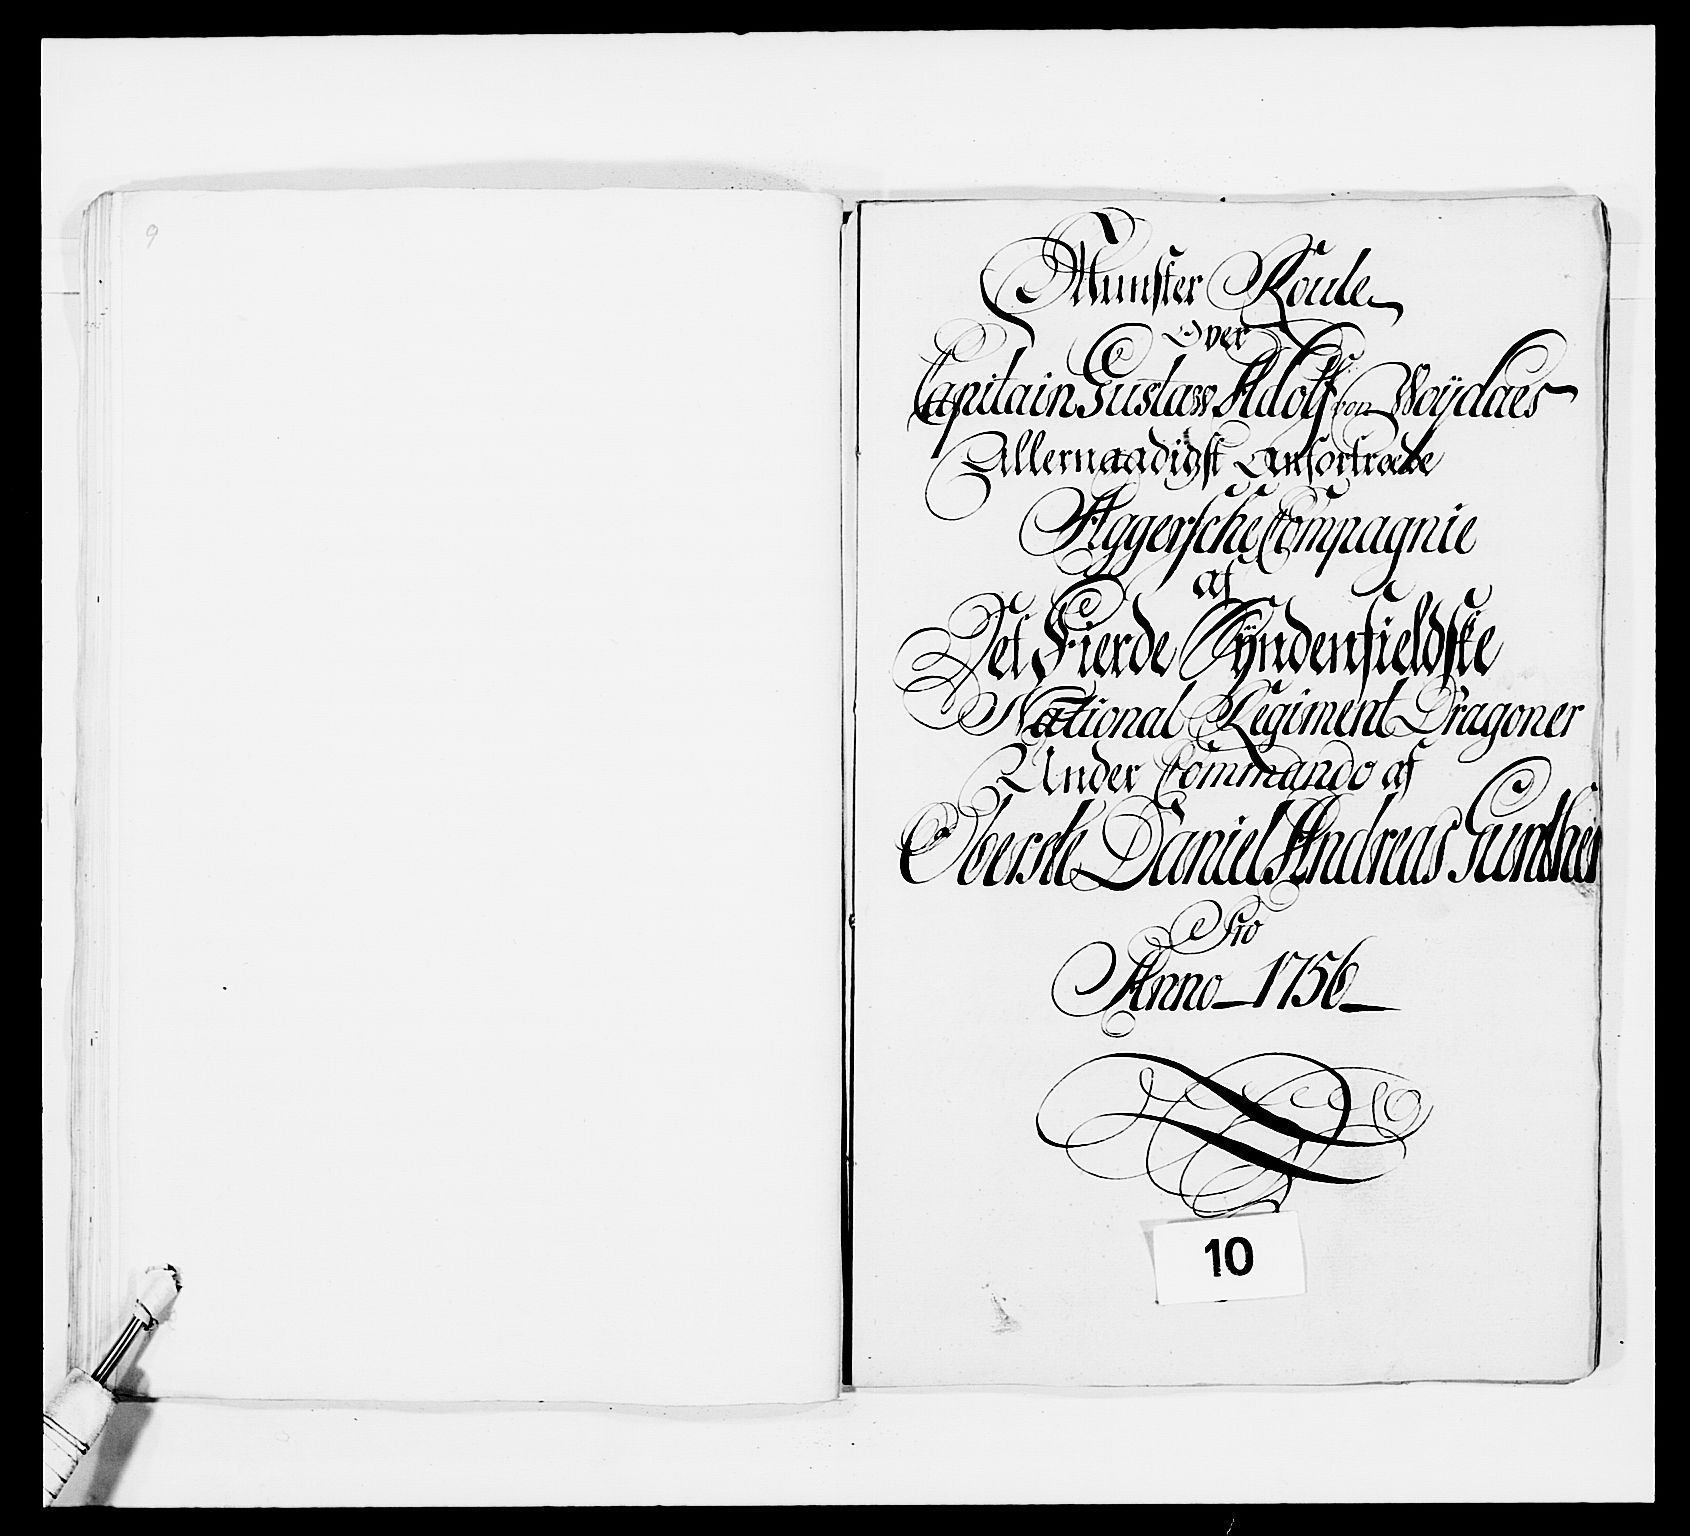 9
Munster Roule
Over
Capitain Gustaw Adolf von Woÿdaes
Allernaadigst Anfortroede
Aggersche Compagnie
af
Det Fierde Syndenfieldske
National Regiment Dragoner
Under Commando af
Oberste Daniel Andreas Gunther
Pro
Anno 1756
10